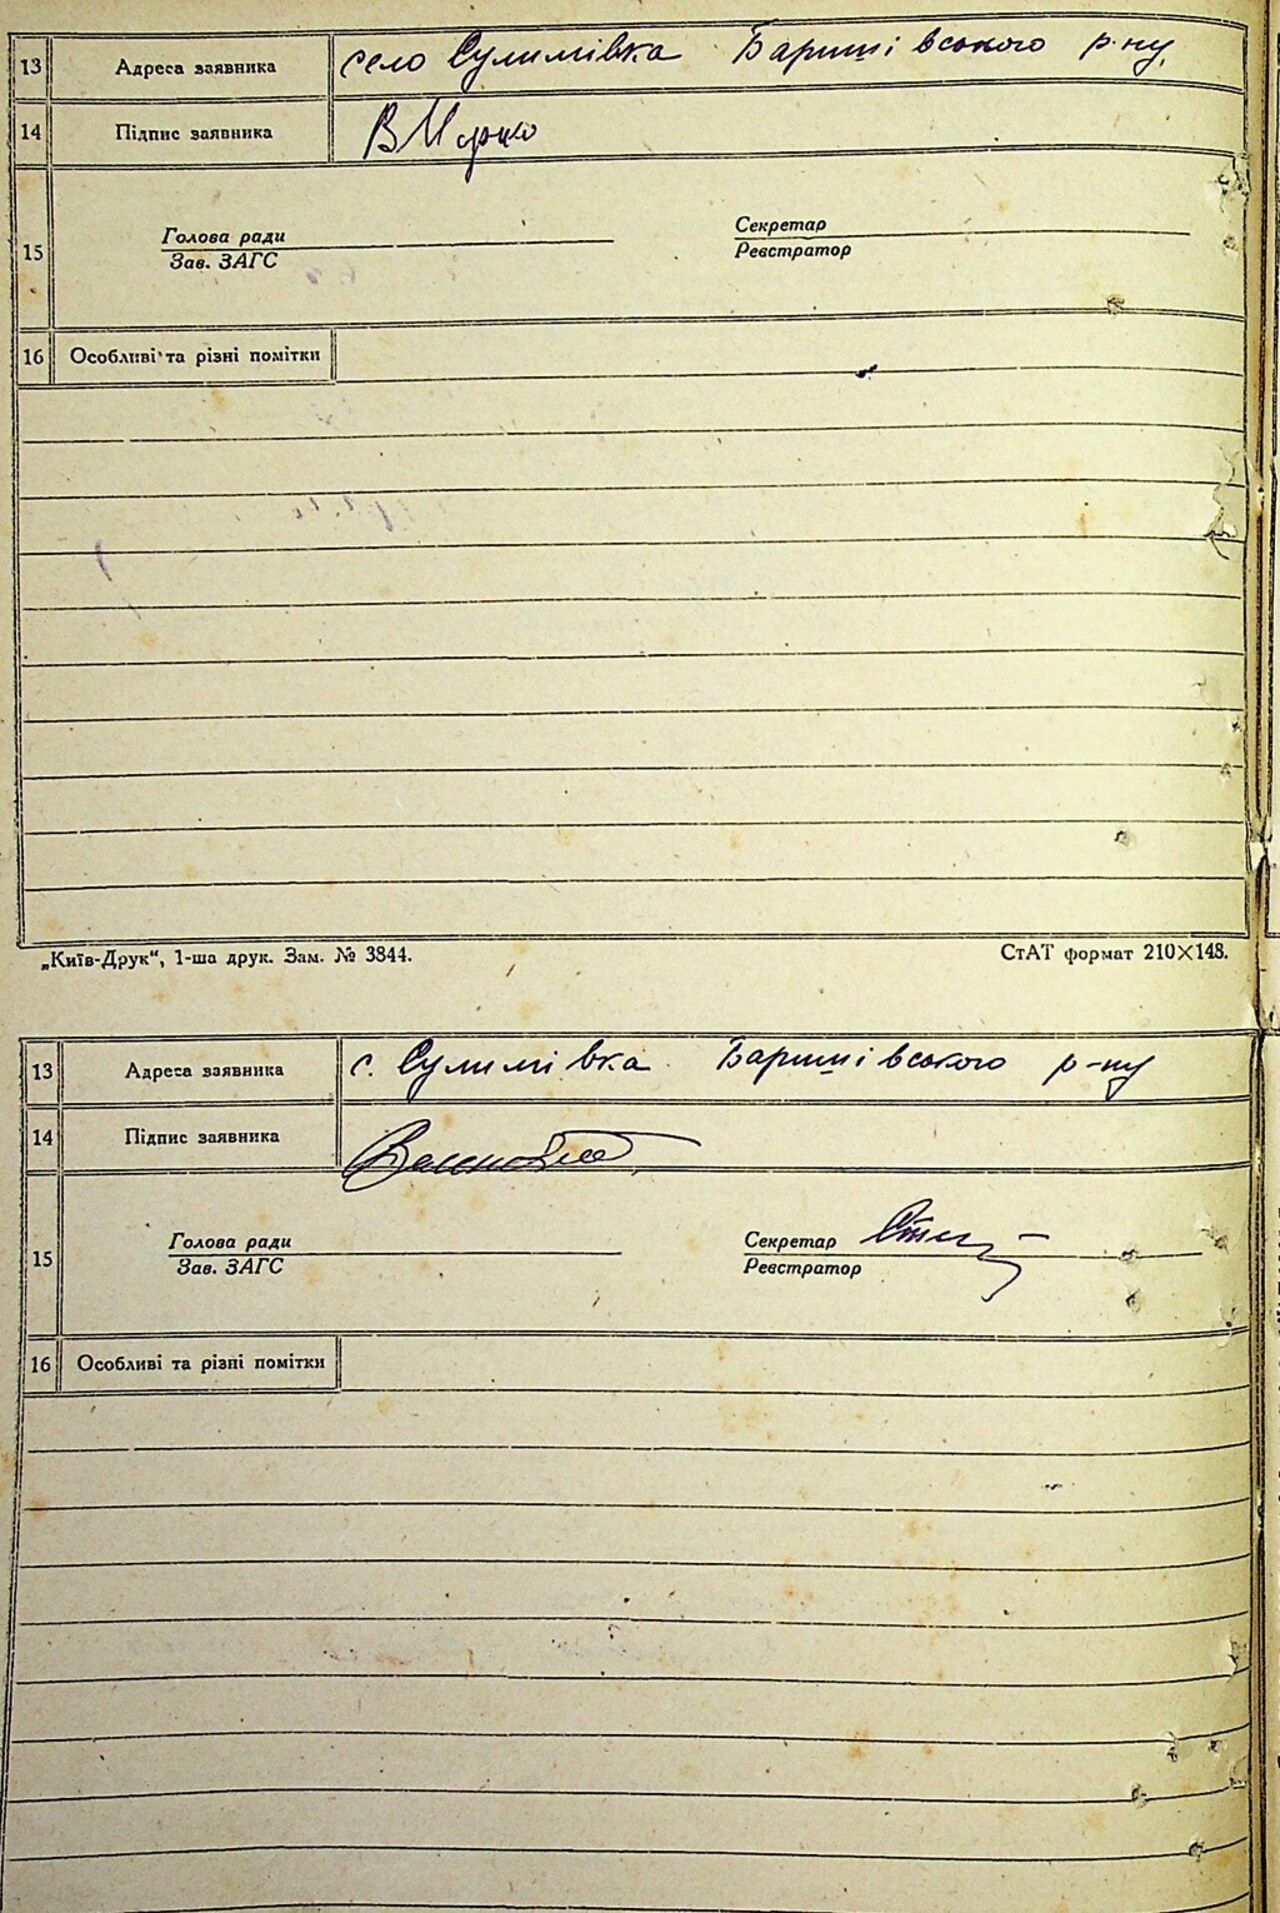 13 Адреса заявника село Сулимівка Баришівського р-ну,
14 Підпис заявника
15 Голова ради Секретар
Зав. ЗАГС Реєстратор
16 Особливі та різні помітки
„Київ-Друк“, 1-ша друк. Зам. № 3844. СтАТ формат 210×148.
13 Адреса заявника с. Сулимівка Баришівського р-ну
14 Підпис заявника
15 Голова ради Секретар
Зав. ЗАГС Реєстратор
16 Особливі та різні помітки